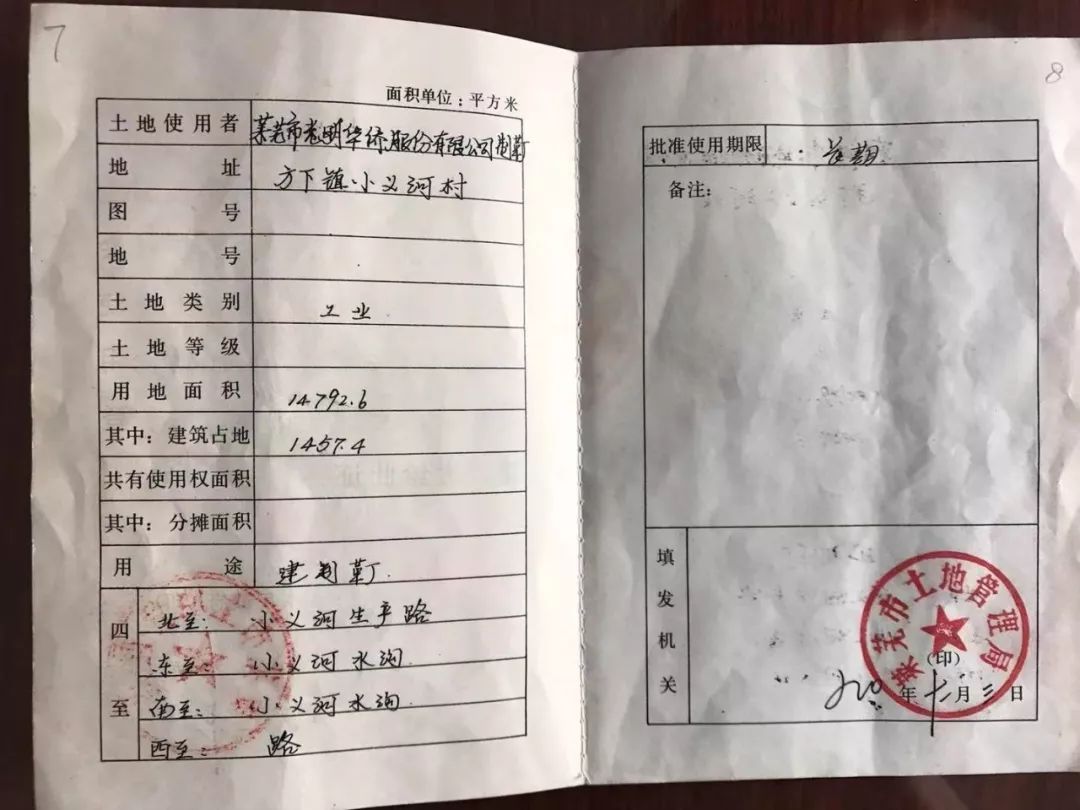 7
面积单位：平方米
土地使用者 莱芜市光明华侨股份有限公司制革厂
地址 方下镇小义河村
图号
地号
土地类别 工业
土地等级
用地面积 14792.6
其中：建筑占地 1457.4
共有使用权面积
其中：分摊面积
用途 建制革厂
四至
北至：小义河生产路
东至：小义河水沟
南至：小义河水沟
西至：路
8
批准使用期限 长期
备注：
填发机关
莱芜市土地管理局
(印)
年 月 日